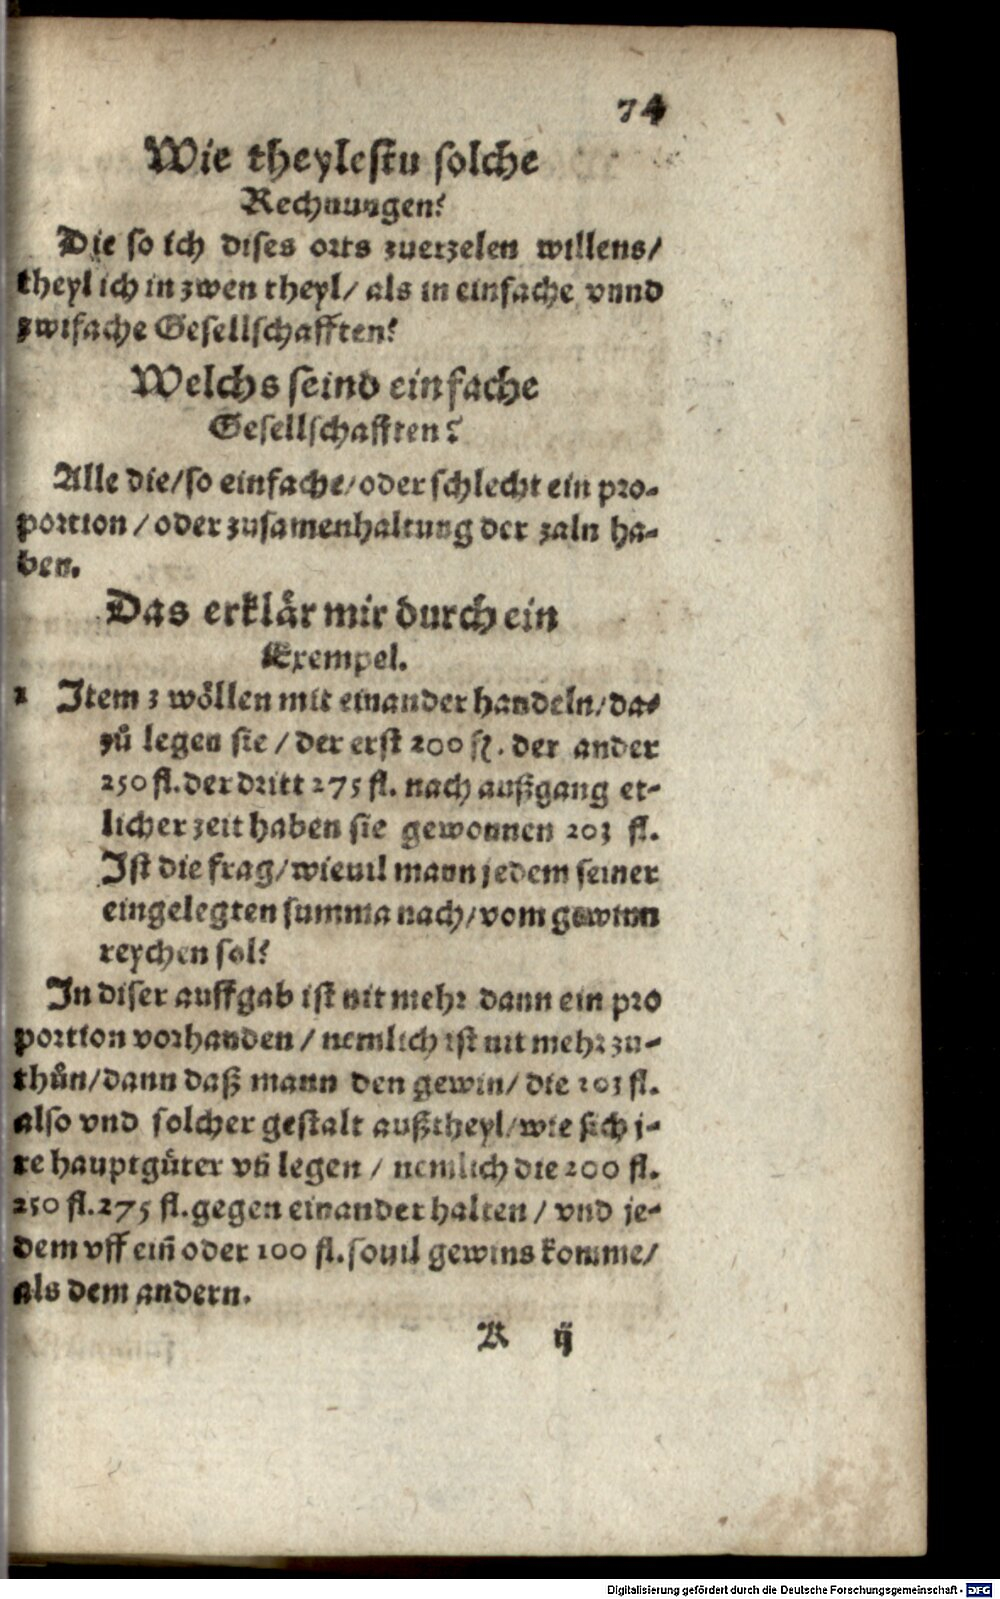 74
Wie theylestu solche
Rechnungen?
Die so ich dises orts zuerzelen willens/
theyl ich in zwen theyl/ als in einfache vnnd
zwifache Gesellschafften?
Welchs seind einfache
Gesellschafften?
Alle die/so einfache/oder schlecht ein pro-
portion/oder zusamenhaltung der zaln ha-
ben.
Das erklår mir durch ein
Exempel.
1 Item 3 wöllen mit einander handeln/da-
zů legen sie/der erst 200 fl. der ander
250 fl. der dritt 275 fl. nach außgang et-
licher zeit haben sie gewonnen 203 fl.
Ist die frag/wieuil mann jedem seiner
eingelegten summa nach/vom gewinn
reychen sol?
In diser auffgab ist nit mehr dann ein pro
portion vorhanden/nemlich ist nit mehr zu-
thůn/dann daß mann den gewin/die 203 fl.
also vnd solcher gestalt außtheyl/wie sich j-
re hauptgůter vñ legen/nemlich die 200 fl.
250 fl. 275 fl. gegen einander halten/vnd je-
dem vff eiñ oder 100 fl. souil gewins komme/
als dem andern.
K ij
Digitalisierung gefördert durch die Deutsche Forschungsgemeinschaft - DFG